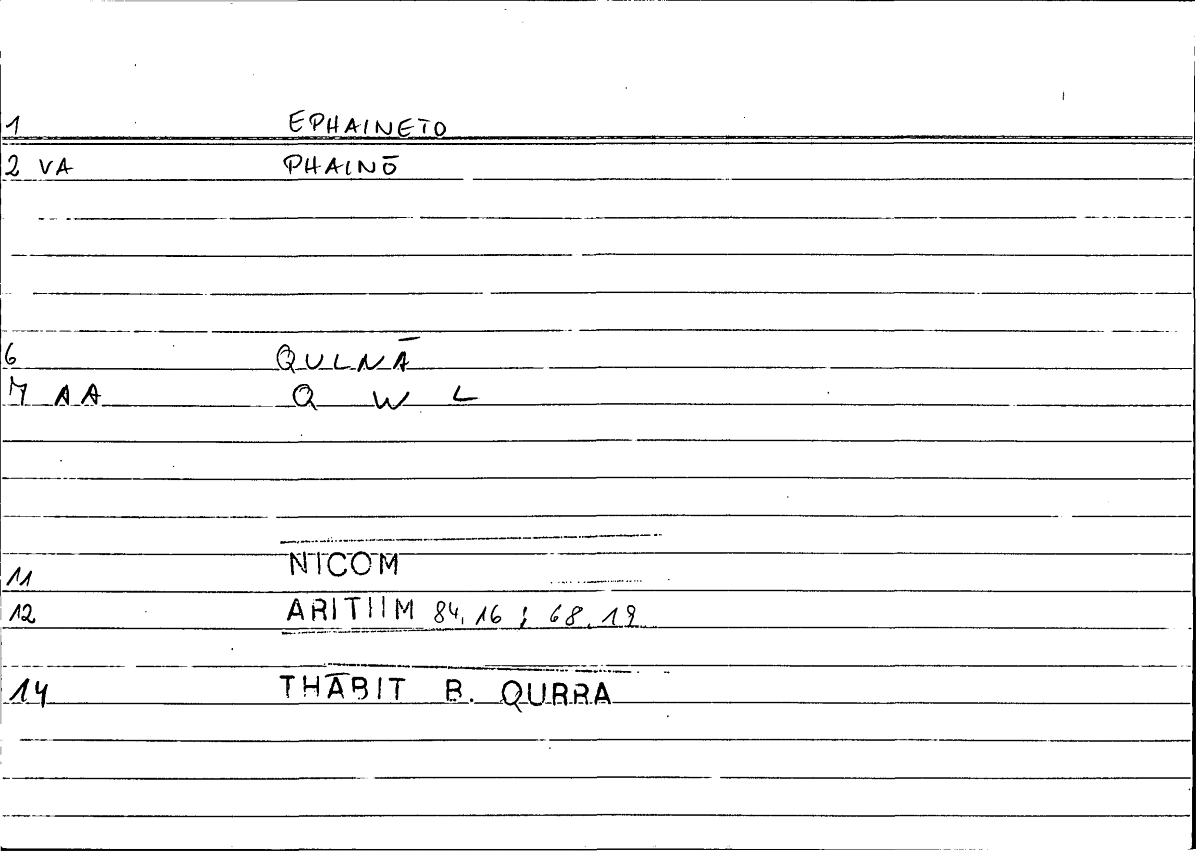 1 EPHAINETO
2 VA PHAINŌ
6 QULNĀ
7 AA Q W L
11 NICOM
12 ARITHM 84,16 ; 68,19
14 THĀBIT B. QURRA